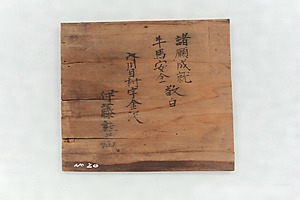 諸願成就
牛馬安全 敬白
村字金沢
伊藤
No 20